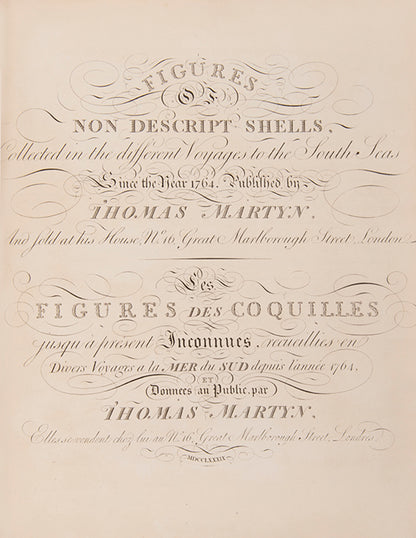 FIGURES
OF
NON DESCRIPT SHELLS,
Collected in the different Voyages to the South Seas
Since the Year 1764. Published by
THOMAS MARTYN,
And sold at his House, No. 16, Great Marlborough Street, London
Les
FIGURES DES COQUILLES
jusqu'à présent Inconnues, recueillies en
Divers Voyages a la MER du SUD depuis l'annee 1764.
ET
Donnees au Public, par
THOMAS MARTYN,
Elles se vendent chez lui au No. 16, Great Marlborough Street, Londres